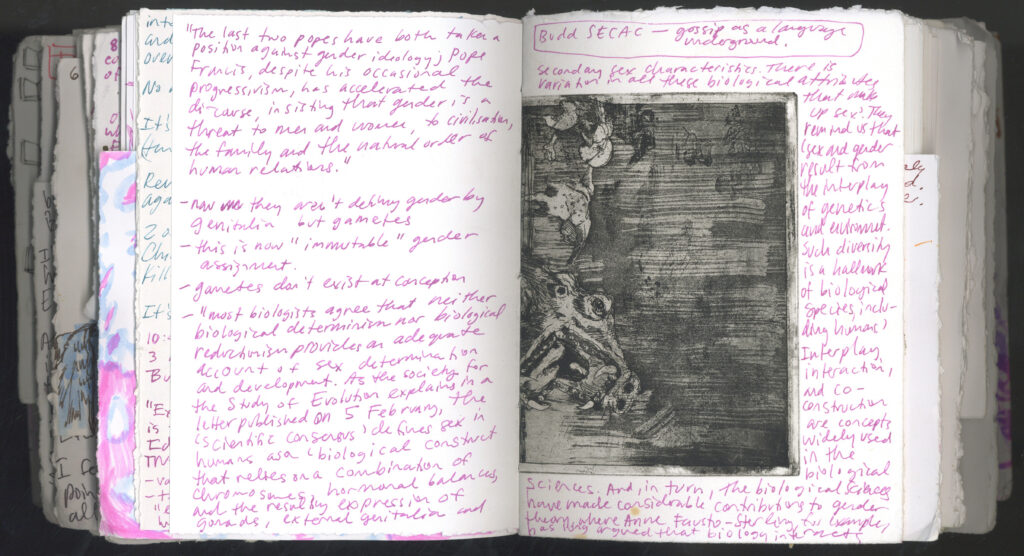 "The last two popes have both taken a
position against gender ideology; Pope
Francis, despite his occasional
progressivism, has accelerated the
discourse, insisting that gender is a
threat to men and women, to civilisation,
the family and the natural order of
human relations."
- now they aren't defining gender by
genitalia but gametes
- this is now "immutable" gender
assignment.
- gametes don't exist at conception
- "most biologists agree that neither
biological determinism nor biological
reductionism provides an adequate
account of sex determination
and development. As the society for
the Study of Evolution explains in a
letter published on 5 February, the
'scientific consensus' defines sex in
humans as a 'biological construct
that relies on a combination of
chromosomes, hormonal balances,
and the resulting expression of
gonads, external genitalia and
Budd SECAC — gossip as a language
underground.
secondary sex characteristics. There is
variation in all these biological attributes
that make
up sex'. They
remind us that
'sex and gender
result from
the interplay
of genetics
and environment.
Such diversity
is a hallmark
of biological
species, inclu-
ding humans.'
Interplay,
interaction,
and co-
construction
are concepts
widely used
in the
biological
sciences. And, in turn, the biological sciences
have made considerable contributions to gender
theory, where Anne Fausto-Sterling, for example,
has long argued that biology interacts